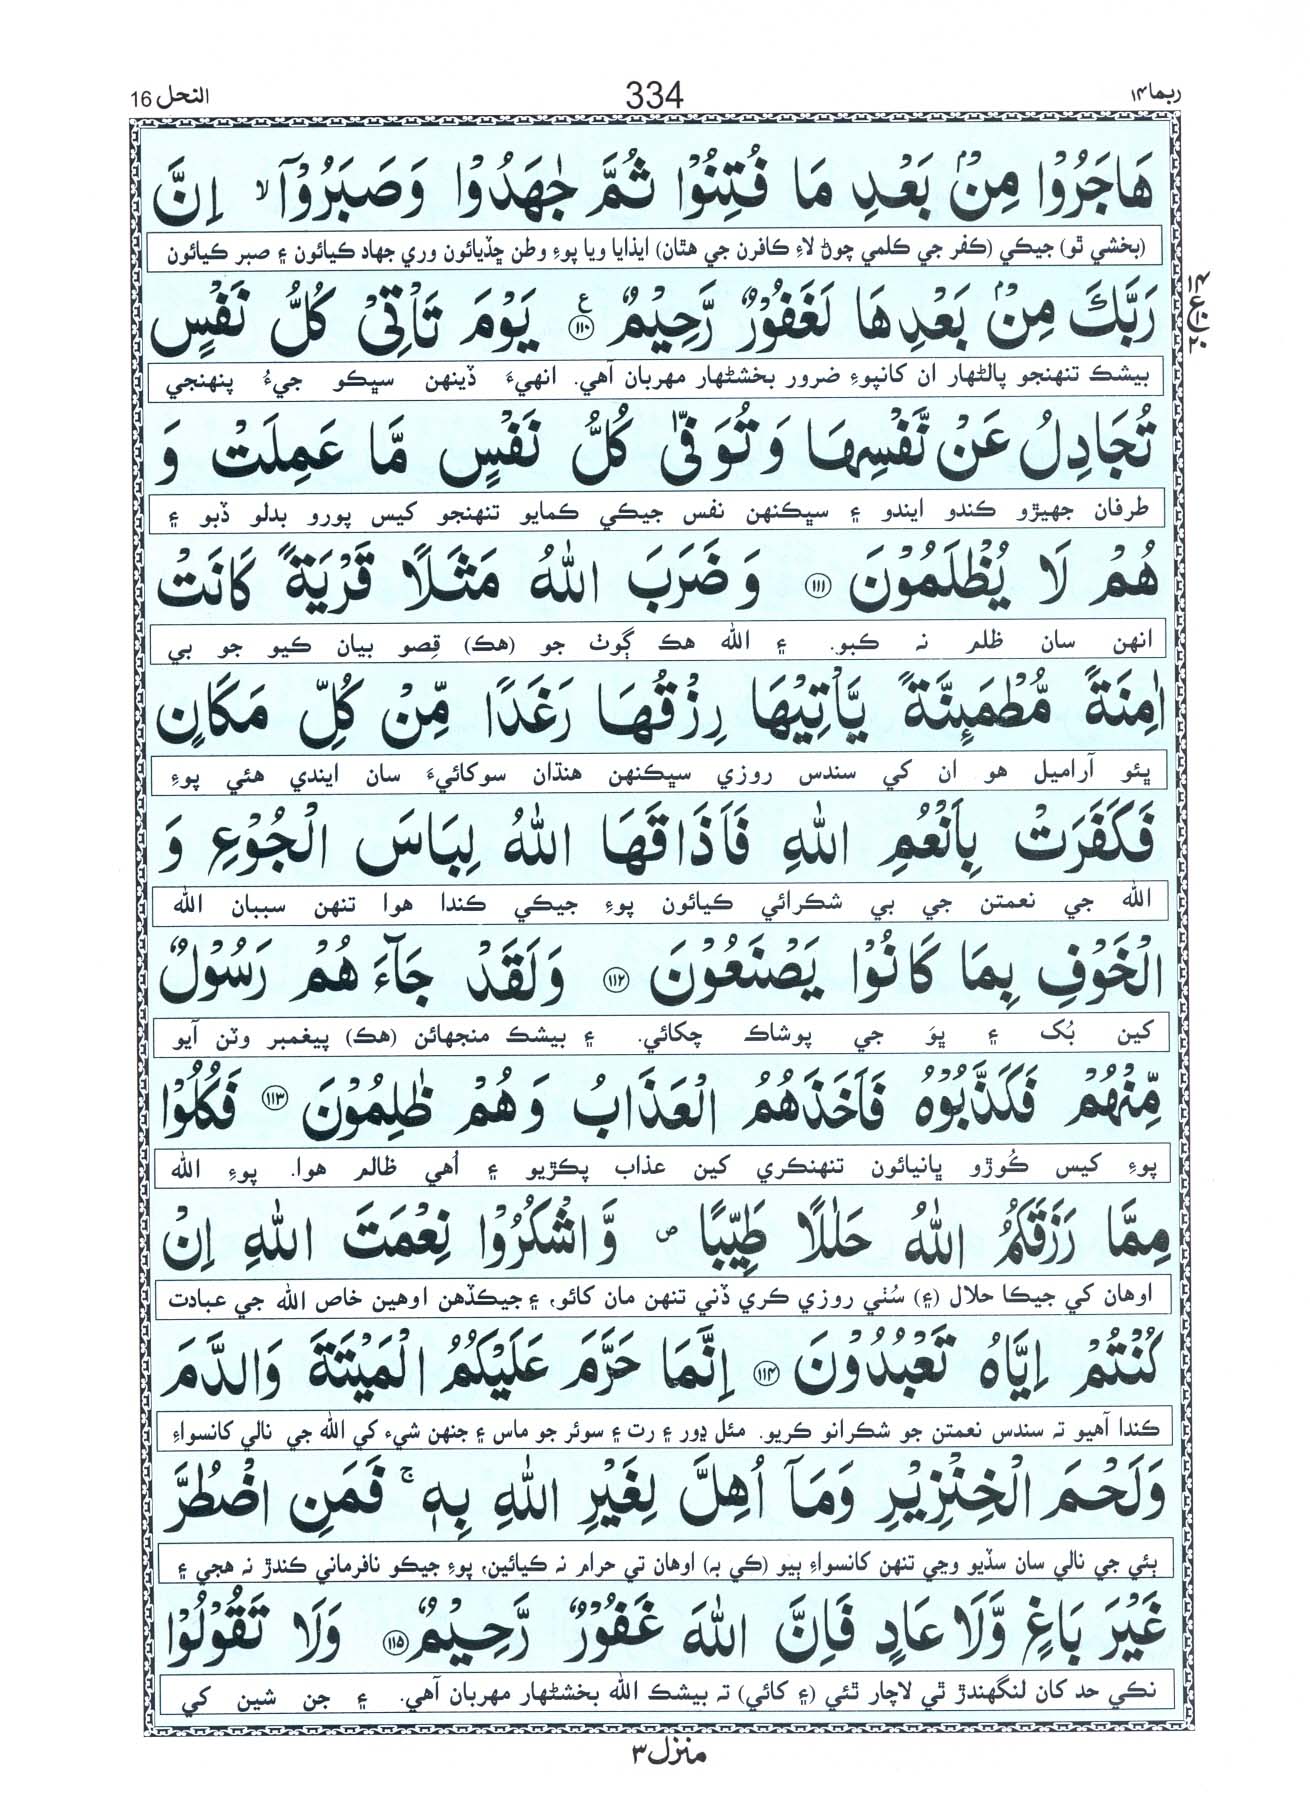 ربما ١٤
334
النحل 16
هَاجَرُوْا مِنْۢ بَعْدِ مَا فُتِنُوْا ثُمَّ جٰهَدُوْا وَصَبَرُوْاۤ ۙ اِنَّ
(بخشي ٿو) جيڪي (ڪفر جي ڪلمي چوڻ لاءِ ڪافرن جي هٿان) ايذايا ويا پوءِ وطن ڇڏيائون وري جهاد ڪيائون ۽ صبر ڪيائون
رَبَّكَ مِنْۢ بَعْدِهَا لَغَفُوْرٌ رَّحِيْمٌ ۧ ﴿۱۱۰﴾ يَوْمَ تَاْتِيْ كُلُّ نَفْسٍ
بيشڪ تنهنجو پالڻهار ان کانپوءِ ضرور بخشڻهار مهربان آهي. انهيءَ ڏينهن سڀڪو جيءُ پنهنجي
تُجَادِلُ عَنْ نَّفْسِهَا وَتُوَفّٰى كُلُّ نَفْسٍ مَّا عَمِلَتْ وَ
طرفان جهيڙو ڪندو ايندو ۽ سڀڪنهن نفس جيڪي ڪمايو تنهنجو کيس پورو بدلو ڏبو ۽
هُمْ لَا يُظْلَمُوْنَ ﴿۱۱۱﴾ وَضَرَبَ اللّٰهُ مَثَلًا قَرْيَةً كَانَتْ
انهن سان ظلم نہ ڪبو. ۽ الله هڪ ڳوٺ جو (هڪ) قِصو بيان ڪيو جو بي
اٰمِنَةً مُّطْمَىِٕنَّةً يَّاْتِيْهَا رِزْقُهَا رَغَدًا مِّنْ كُلِّ مَكَانٍ
ڀئو آراميل هو ان کي سندس روزي سڀڪنهن هنڌان سوکائيءَ سان ايندي هئي پوءِ
فَكَفَرَتْ بِاَنْعُمِ اللّٰهِ فَاَذَاقَهَا اللّٰهُ لِبَاسَ الْجُوْعِ وَ
الله جي نعمتن جي بي شڪرائي ڪيائون پوءِ جيڪي ڪندا هوا تنهن سببان الله
الْخَوْفِ بِمَا كَانُوْا يَصْنَعُوْنَ ﴿۱۱۲﴾ وَلَقَدْ جَآءَهُمْ رَسُوْلٌ
کين بُک ۽ ڀوَ جي پوشاڪ چکائي. ۽ بيشڪ منجهائن (هڪ) پيغمبر وٽن آيو
مِّنْهُمْ فَكَذَّبُوْهُ فَاَخَذَهُمُ الْعَذَابُ وَهُمْ ظٰلِمُوْنَ ﴿۱۱۳﴾ فَكُلُوْا
پوءِ کيس ڪُوڙو ڀانيائون تنهنڪري کين عذاب پڪڙيو ۽ اُهي ظالم هوا. پوءِ الله
مِمَّا رَزَقَكُمُ اللّٰهُ حَلٰلًا طَيِّبًا ۪ وَّاشْكُرُوْا نِعْمَتَ اللّٰهِ اِنْ
اوهان کي جيڪا حلال (۽) سُٺي روزي ڪري ڏني تنهن مان کائو، ۽ جيڪڏهن اوهين خاص الله جي عبادت
كُنْتُمْ اِيَّاهُ تَعْبُدُوْنَ ﴿۱۱۴﴾ اِنَّمَا حَرَّمَ عَلَيْكُمُ الْمَيْتَةَ وَالدَّمَ
ڪندا آهيو تہ سندس نعمتن جو شڪرانو ڪريو. مئل ڍور ۽ رت ۽ سوئر جو ماس ۽ جنهن شيء کي الله جي نالي کانسواءِ
وَلَحْمَ الْخِنْزِيْرِ وَمَآ اُهِلَّ لِغَيْرِ اللّٰهِ بِهٖ ۚ فَمَنِ اضْطُرَّ
ٻئي جي نالي سان سڏيو وڃي تنهن کانسواءِ ٻيو (ڪي بہ) اوهان تي حرام نہ ڪيائين، پوءِ جيڪو نافرماني ڪندڙ نہ هجي ۽
غَيْرَ بَاغٍ وَّلَا عَادٍ فَاِنَّ اللّٰهَ غَفُوْرٌ رَّحِيْمٌ ﴿۱۱۵﴾ وَلَا تَقُوْلُوْا
نڪي حد کان لنگهندڙ ٿي لاچار ٿئي (۽ کائي) تہ بيشڪ الله بخشڻهار مهربان آهي. ۽ جن شين کي
منزل ۳